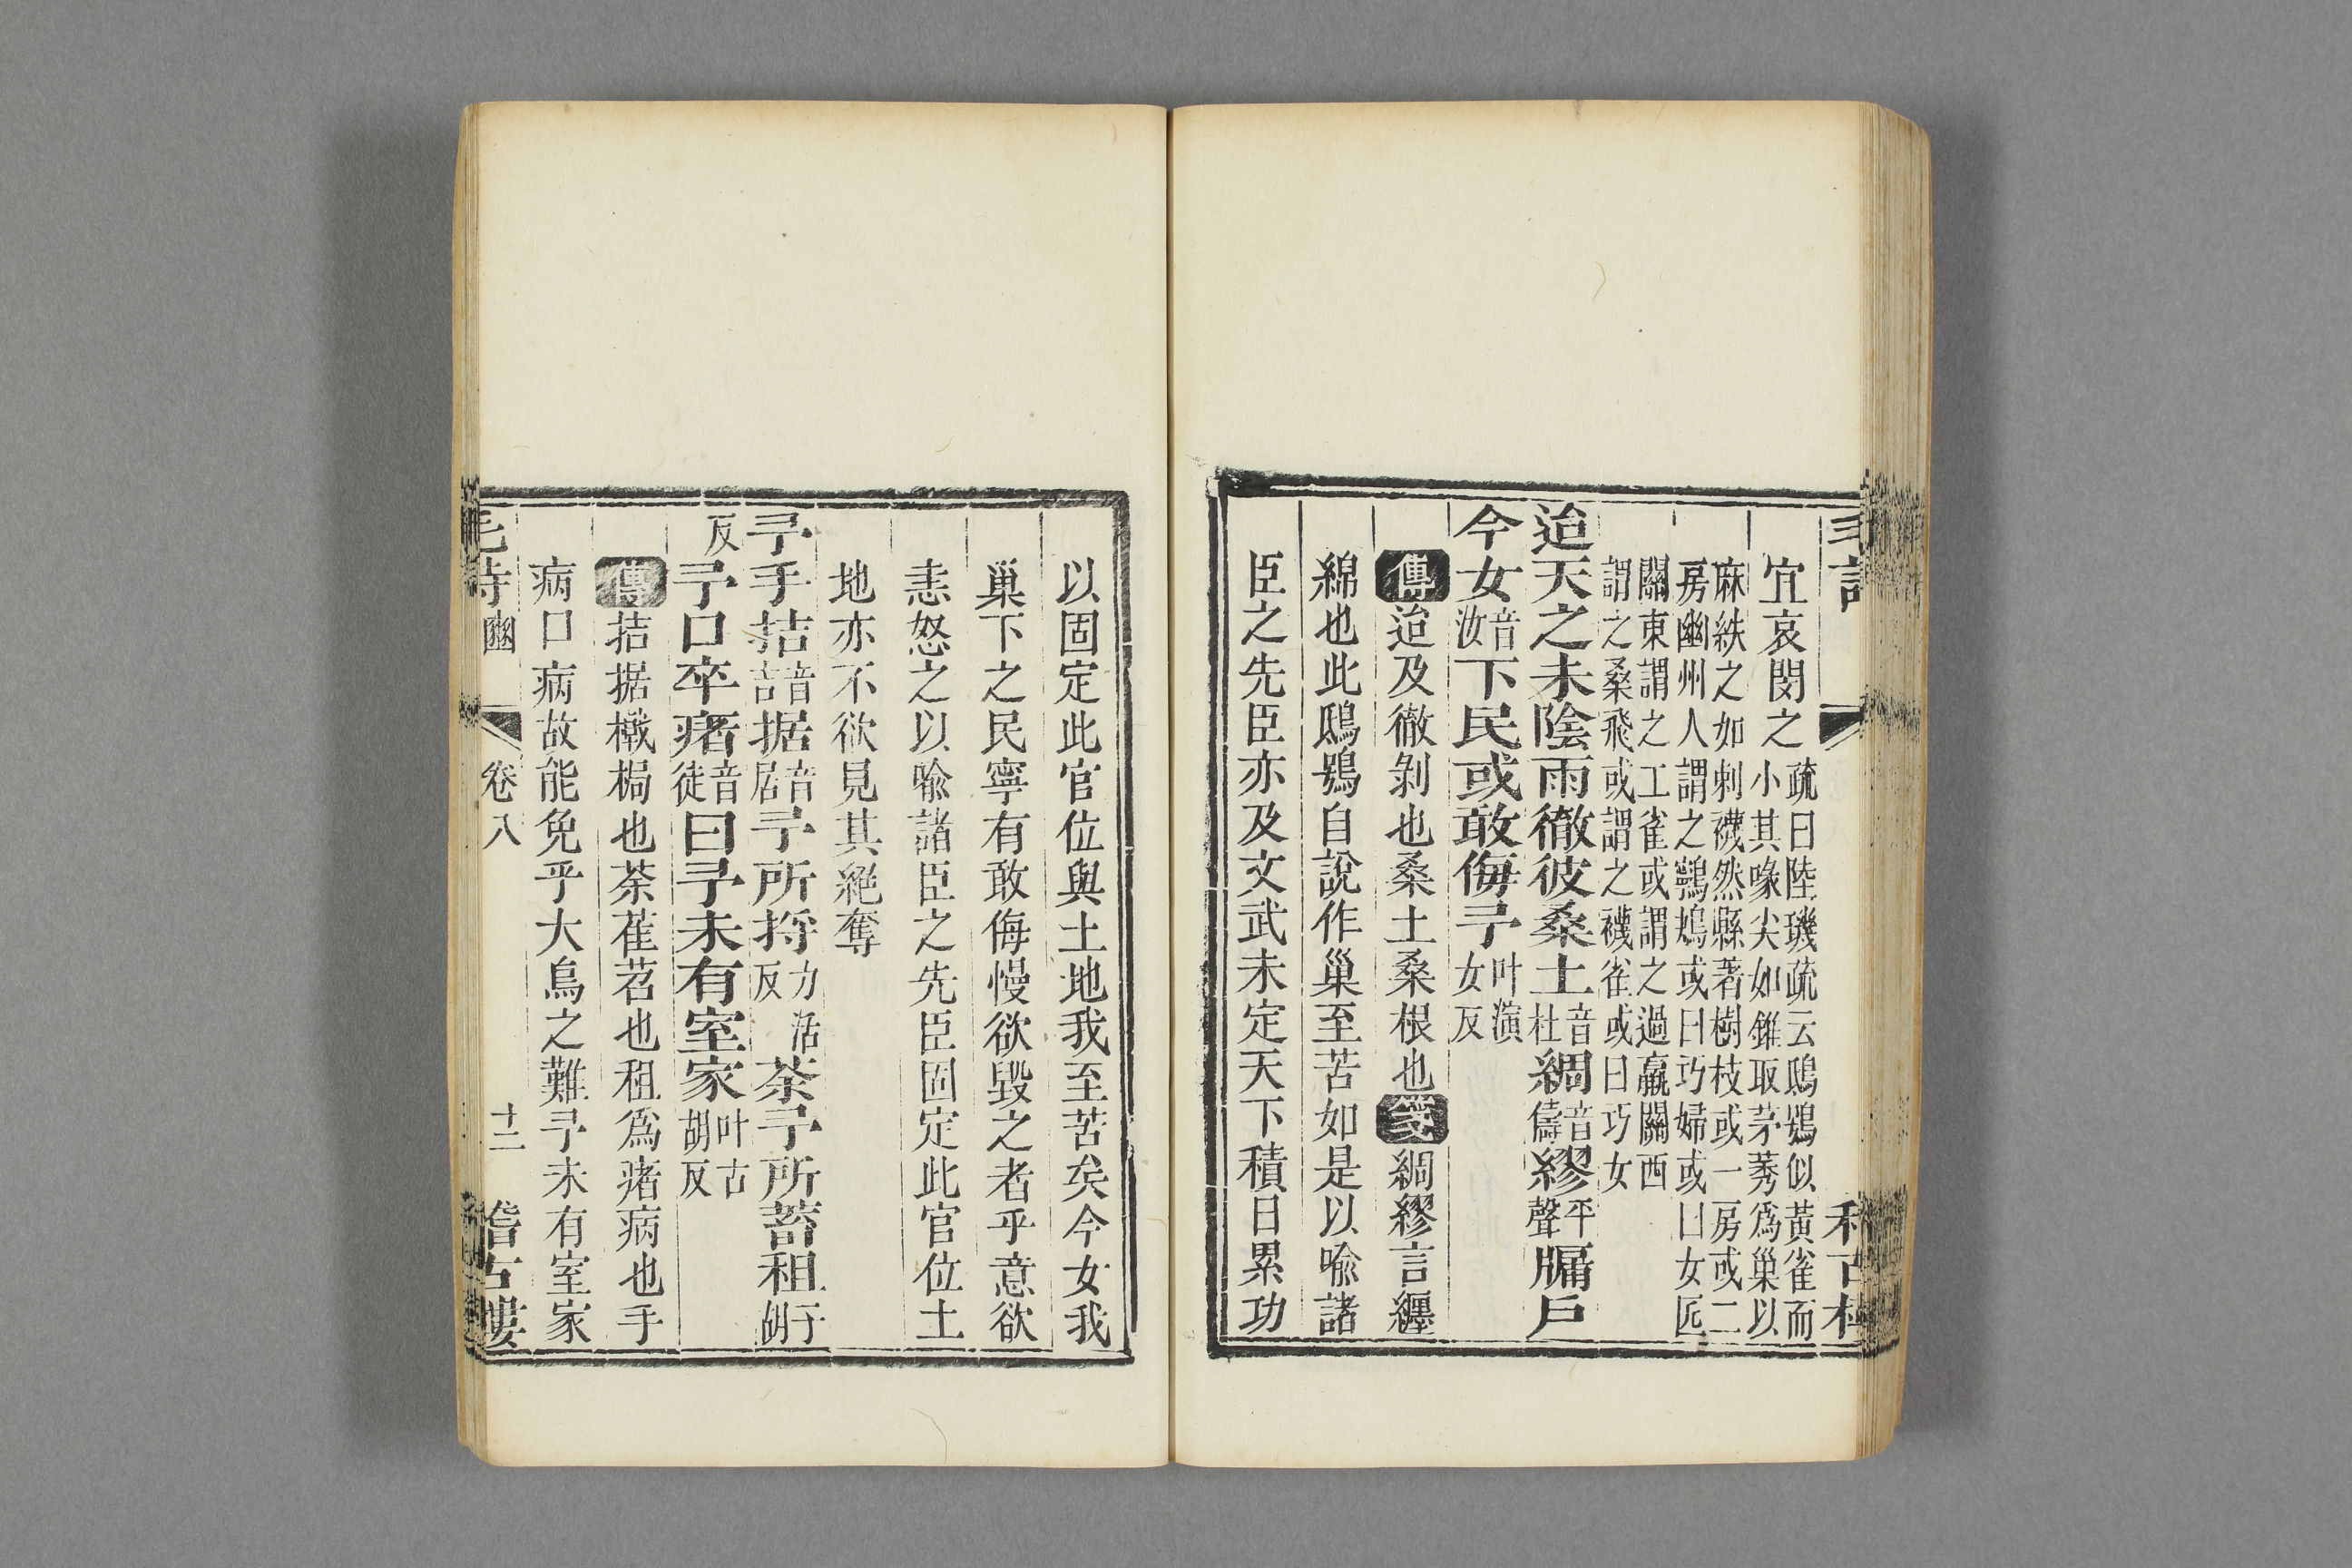 宜哀閔之疏曰陸璣疏云鴟鴞似黃雀而
小其喙尖如錐取茅莠爲巢以
麻紩之如刺襪然縣著樹枝或一房或二
房幽州人謂之鸋鴂或曰巧婦或曰女匠
關東謂之工雀或謂之過羸關西
謂之桑飛或謂之襪雀或曰巧女
迨天之未陰雨徹彼桑土音杜綢音儔繆平聲牖戶
今女音汝下民或敢侮予叶演女反
傳迨及徹剝也桑土桑根也箋綢繆言纏
綿也此鴟鴞自說作巢至苦如是以喩諸
臣之先臣亦及文武未定天下積日累功
以固定此官位與土地我至苦矣今女我
巢下之民寧有敢侮慢欲毀之者乎意欲
恚怒之以喩諸臣之先臣固定此官位土
地亦不欲見其絕奪
予手拮音吉据音居予所捋力活反荼予所蓄租子胡
反予口卒瘏音徒曰予未有室家叶古胡反
傳拮据撠挶也荼萑苕也租爲瘏病也手
病口病故能免乎大鳥之難予未有室家
毛詩豳 卷八 十二 稽古樓